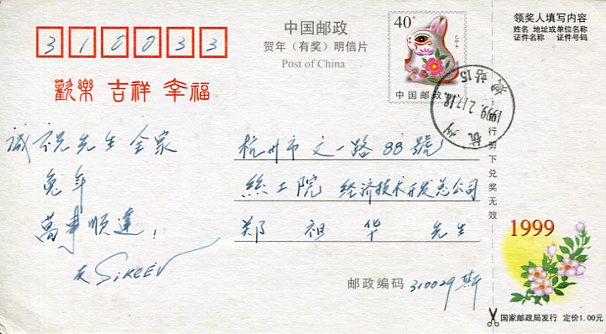 310033
中国邮政
贺年（有奖）明信片
Post of China
40分
中国邮政
领奖人填写内容
姓名 地址或单位名称
证件名称 证件号码
歡樂 吉祥 幸福
杭州
1999.2.12.18
站15
诚祝先生全家
兔年
萬事順達！
杭州市文一路88號
絲工院 经济技术开发总公司
郑祖华 先生
邮政编码 310029
自行剪下兑奖无效
1999
国家邮政局发行 定价1.00元